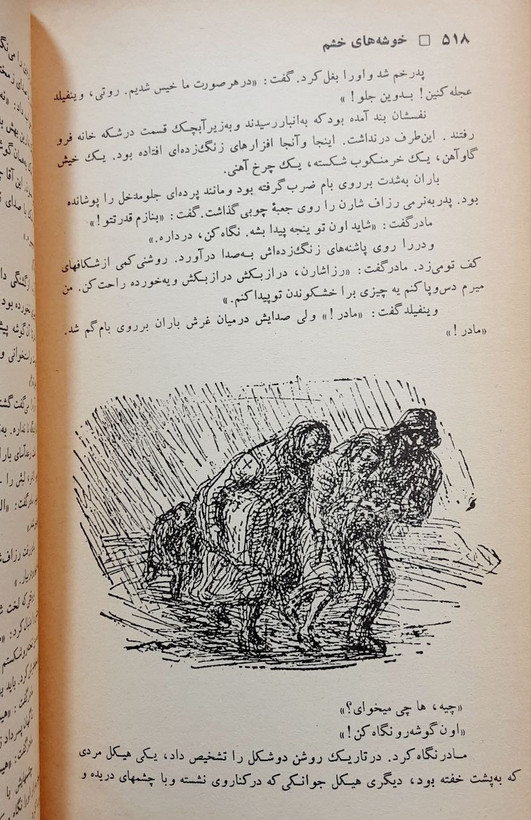 ۵۱۸ □ خوشه‌های خشم
پدر خم شد و او را بغل کرد. گفت: «در هر صورت ما خیس شدیم. روتی، وینفیلد
عجله کنین! بدوین جلو!»
نفسشان بند آمده بود که به انبار رسیدند و به زیر آبچک قسمت درشکه خانه فرو
رفتند. این طرف در نداشت. اینجا و آنجا افزارهای زنگ‌زده‌ای افتاده بود. یک خیش
گاوآهن، یک خرمنکوب شکسته، یک چرخ آهنی.
باران به‌شدت بر روی بام ضرب گرفته بود و مانند پرده‌ای جلو مدخل را پوشانده
بود. پدر به‌نرمی رزاف شارن را روی جعبهٔ چوبی گذاشت. گفت: «بنازم قدرتتو!»
مادر گفت: «شاید اون تو ینجه پیدا بشه. نگاه کن، در داره.»
و در را روی پاشنه‌های زنگ‌زده‌اش به‌صدا درآورد. روشنی کمی از شکافهای
کف تو می‌زد. مادر گفت: «رزاشارن، دراز بکش دراز بکش و یه خورده راحت کن. من
میرم دس و پا کنم یه چیزی برا خشکوندن تو پیدا کنم.»
وینفیلد گفت: «مادر!» ولی صدایش درمیان غرش باران بر روی بام گم شد.
«مادر!»
«چیه، ها چی میخوای؟»
«اون گوشه‌رو نگاه کن!»
مادر نگاه کرد. در تاریک روشن دو شکل را تشخیص داد، یکی هیکل مردی
که به‌پشت خفته بود، دیگری هیکل جوانکی که در کناروی نشسته و با چشمهای دریده و